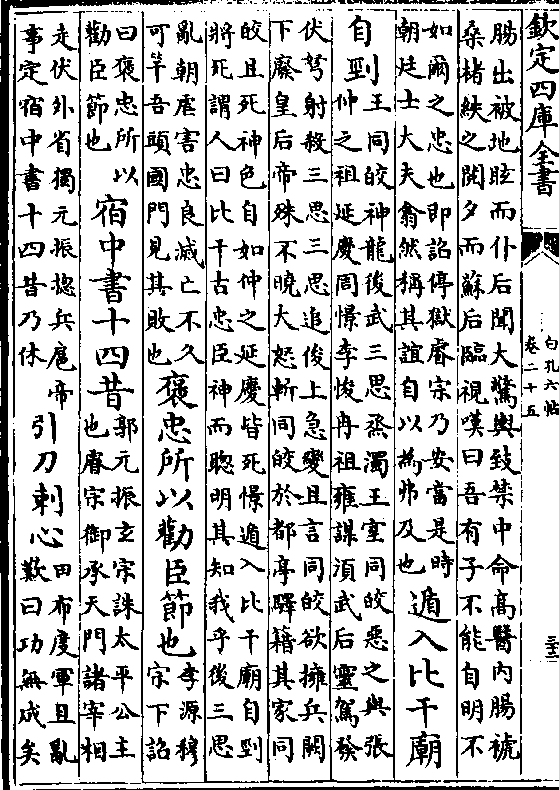 欽定四庫全書
白孔六帖
卷二十五
三十二
腸出被地眩而仆后聞大驚輿致禁中命高醫內腸褫
桑楮紩之閱夕而蘇后臨視嘆曰吾有子不能自明不
如爾之忠也即詔停獄睿宗乃安當是時
朝廷士大夫翕然稱其誼自以為弗及也
遁入比干廟
自剄
王同皎神龍後武三思烝濁王室同皎惡之與張
仲之祖延慶周憬李悛冉祖雍謀須武后靈駕發
伏弩射殺三思三思追俊上急變且言同皎欲擁兵闕
下廢皇后帝殊不曉大怒斬同皎於都亭驛籍其家同
皎且死神色自如仲之延慶皆死憬遁入比干廟自剄
將死謂人曰比干古忠臣神而聰明其知我乎後三思
亂朝虐害忠良滅亡不久
可竿吾頭國門見其敗也
褒忠所以勸臣節也
李源穆
宗下詔
曰褒忠所以
勸臣節也
宿中書十四昔
郭元振玄宗誅太平公主
也睿宗御承天門諸宰相
走伏外省獨元振揔兵扈帝
事定宿中書十四昔乃休
引刀刺心
田布度軍且亂
歎曰功無成矣